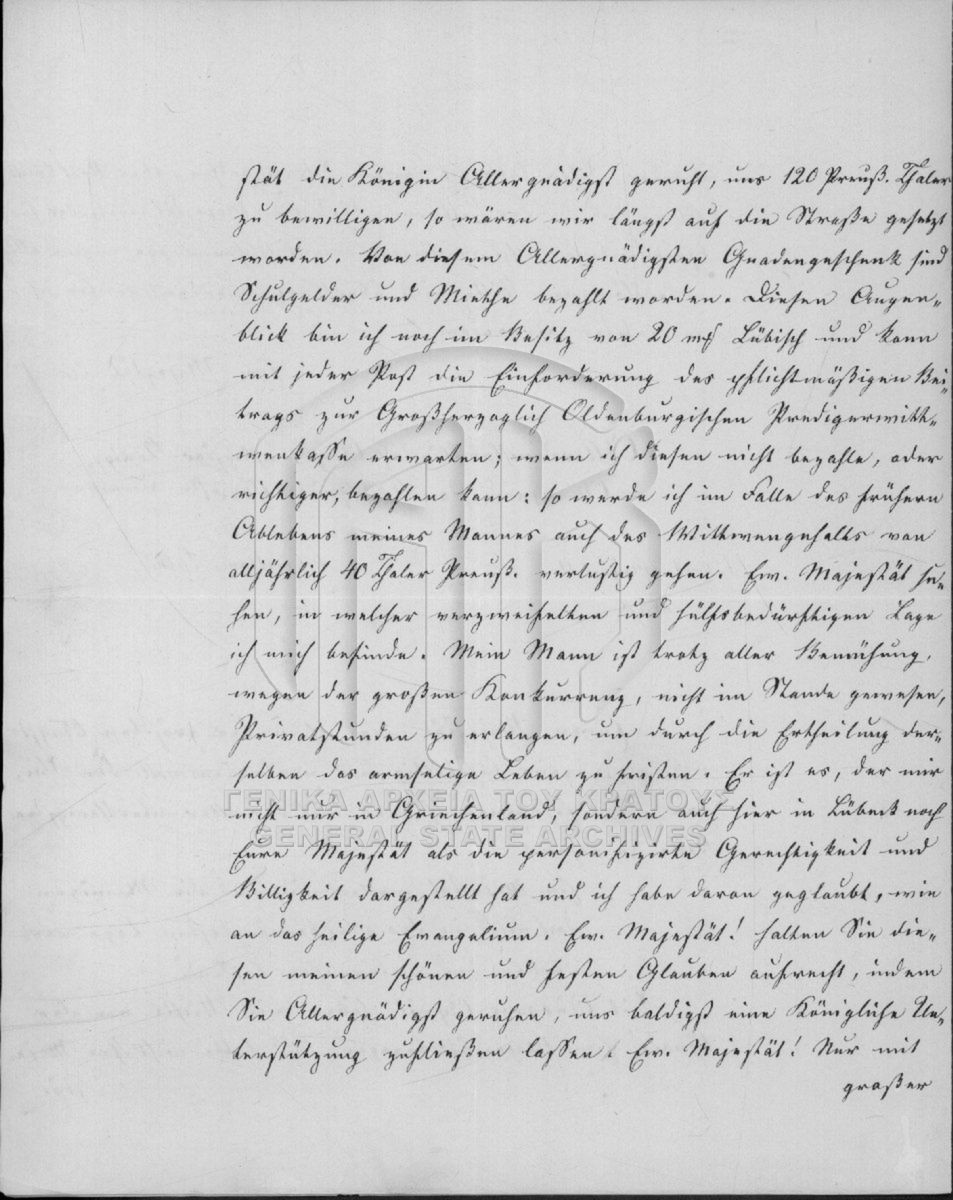 stät die Königin Allergnädigst geruht, uns 120 Preuß. Thaler
zu bewilligen, so wären wir längst auf die Straße gesetzt
worden. Von diesem Allergnädigsten Gnadengeschenk sind
Schulgelder und Miethe bezahlt worden. Diesen Augen-
blick bin ich noch im Besitz von 20 mß Lübisch und kann
mit jeder Post die Einforderung des pflichtmäßigen Bei-
trags zur Großherzoglich Oldenburgischen Predigerwitt-
wenkasse erwarten; wenn ich diesen nicht bezahle, oder
richtiger, bezahlen kann: so werde ich im Falle des frühern
Ablebens meines Mannes auch des Wittwengehalts von
alljährlich 40 Thaler Preuß. verlustig gehen. Ew. Majestät se-
hen, in welcher verzweifelten und hülfsbedürftigen Lage
ich mich befinde. Mein Mann ist trotz aller Bemühung,
wegen der großen Konkurrenz, nicht im Stande gewesen,
Privatstunden zu erlangen, um durch die Ertheilung der-
selben das armselige Leben zu fristen. Er ist es, der mir
nicht nur in Griechenland, sondern auch hier in Lübeck noch
Eure Majestät als die personifizirte Gerechtigkeit und
Billigkeit dargestellt hat und ich habe daran geglaubt, wie
an das heilige Evangelium. Ew. Majestät! halten Sie die-
sen meinen schönen und festen Glauben aufrecht, indem
Sie Allergnädigst geruhen, uns baldigst eine Königliche Un-
terstützung zufließen lassen. Ew. Majestät! Nur mit
großer
ΓΕΝΙΚΑ ΑΡΧΕΙΑ ΤΟΥ ΚΡΑΤΟΥΣ
GENERAL STATE ARCHIVES